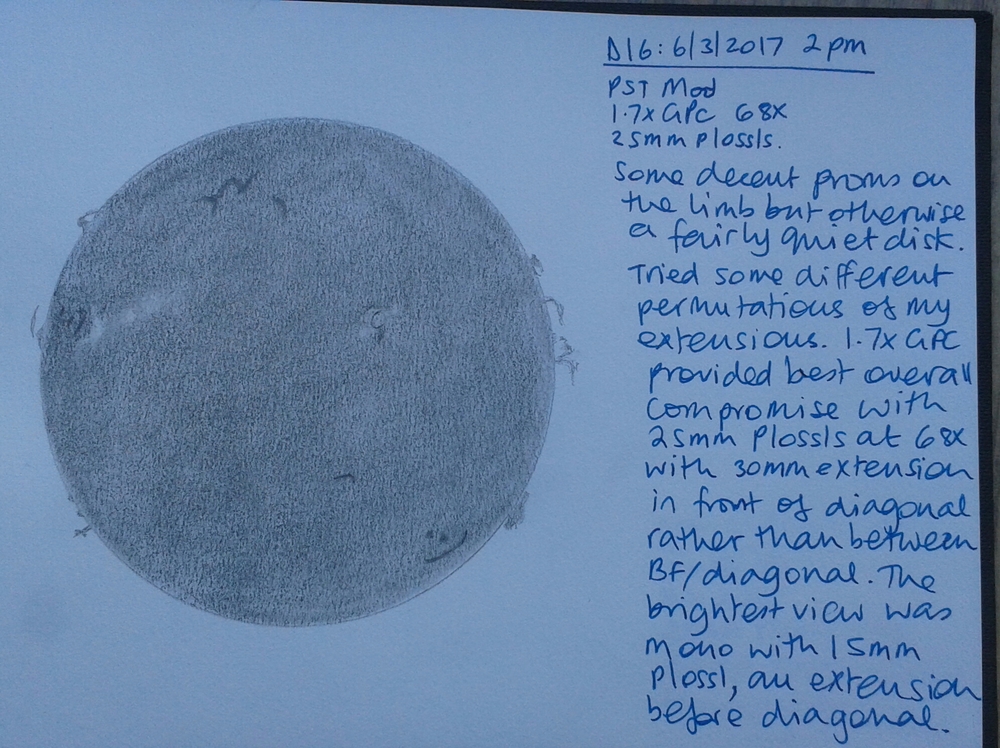 D16: 6/3/2017 2pm
PST Mod
1.7x GPC 68x
25mm plossls.
Some decent proms on
the limb but otherwise
a fairly quiet disk.
Tried some different
permutations of my
extensions. 1.7x GPC
provided best overall
compromise with
25mm Plossls at 68x
with 30mm extension
in front of diagonal
rather than between
BF/diagonal. The
brightest view was
mono with 15mm
Plossl, an extension
before diagonal.